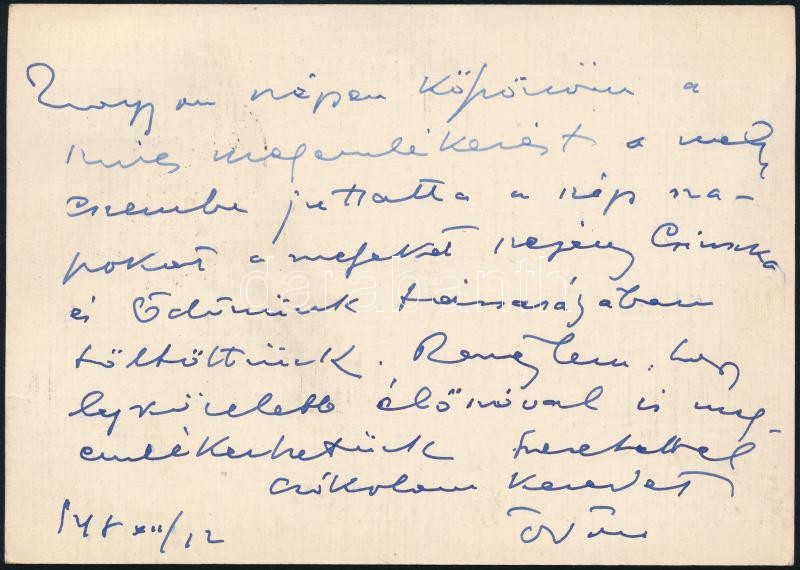 Nagyon szépen köszönöm a
kives megemlékezést a mely
eszembe juttatta a szép na-
pokat a melyeket szegény Csinszka
és Ödönünk társaságában
töltöttünk. Remélem, hogy
legközelebb élőszóval is meg-
emlékezhetünk Szeretettel
csókolom kezedet
948 XII/12
darabanth